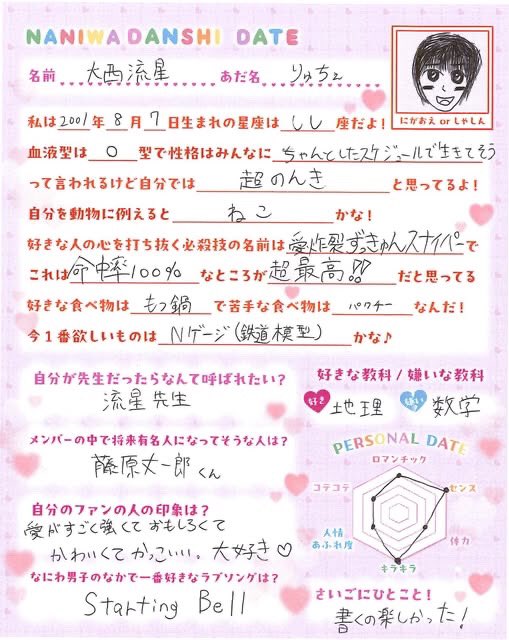 NANIWA DANSHI DATE
名前 大西流星 あだ名 りゅちぇ
にがおえ or しゃしん
私は2001年8月7日生まれの星座はしし座だよ!
血液型はO型で性格はみんなにちゃんとしたスケジュールで生きてそう
って言われるけど自分では超のんきと思ってるよ!
自分を動物に例えるとねこかな!
好きな人の心を打ち抜く必殺技の名前は愛炸裂ずっきゅんスナイパーで
これは命中率100%なところが超最高!!だと思ってる
好きな食べ物はもつ鍋で苦手な食べ物はパクチーなんだ!
今1番欲しいものはNゲージ(鉄道模型)かな♪
自分が先生だったらなんて呼ばれたい?
流星先生
好きな教科/嫌いな教科
好き 地理 嫌い 数学
メンバーの中で将来有名人になってそうな人は?
藤原丈一郎くん
PERSONAL DATE
ロマンチック
コテコテ
センス
人情
あふれ度
体力
キラキラ
自分のファンの人の印象は?
愛がすごく強くておもしろくて
かわいくてかっこいい。大好き♡
なにわ男子のなかで一番好きなラブソングは?
Starting Bell
さいごにひとこと!
書くの楽しかった!